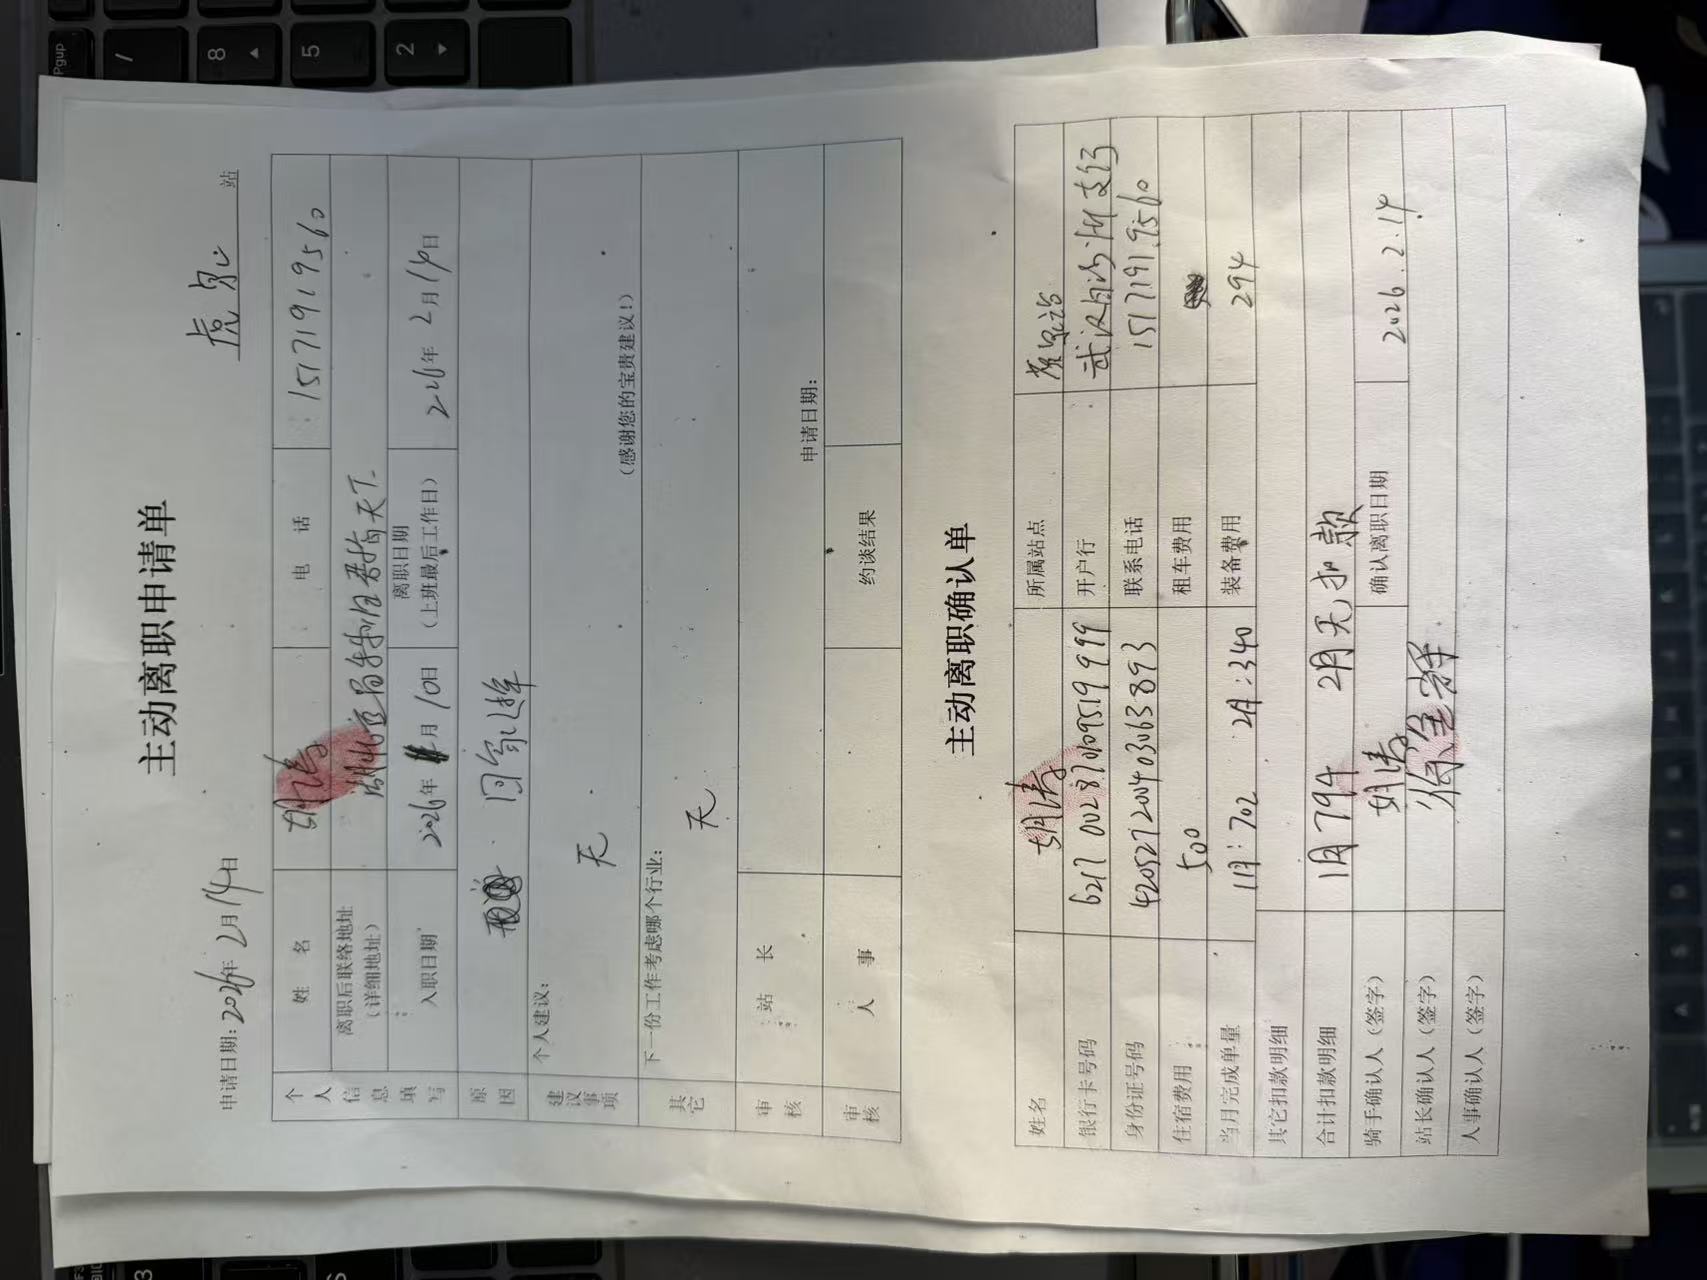 主动离职申请单
申请日期：2026年2月14日 虎泉 站
个人信息填写 姓名 胡涛 电话 15171919560
离职后联络地址（详细地址） 湖北宜昌秭归
入职日期 2026年 月10日 离职日期（上班最后工作日） 2026年2月14日
原因 回家过年
建议事项 个人建议：
无
（感谢您的宝贵建议！）
其它 下一份工作考虑哪个行业：
无
审核 站长 申请日期：
审核 人事 约谈结果
主动离职确认单
姓名 胡涛 所属站点 虎泉站
银行卡号码 开户行 武汉白沙洲支行
身份证号码 420527200403063893 联系电话 15171919560
住宿费用 500 租车费用
当月完成单量 1月：702 2月：340 装备费用 294
其它扣款明细
合计扣款明细 1月794 2月无扣款
骑手确认人（签字） 胡涛 确认离职日期 2026.2.14
站长确认人（签字）
人事确认人（签字）
Pgup
/
8
5
2